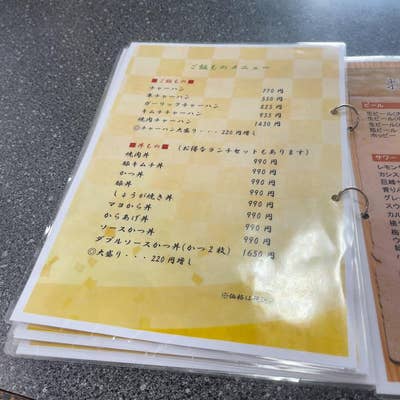 ご飯ものメニュー
■ご飯もの■
チャーハン 770円
半チャーハン 550円
ガーリックチャーハン 825円
キムチチャーハン 935円
焼肉チャーハン 1430円
◎チャーハン大盛り・・・220円増し
■丼もの■ (お得なランチセットもあります)
焼肉丼 990円
豚キムチ丼 990円
かつ丼 990円
豚丼 990円
しょうが焼き丼 990円
マヨから丼 990円
からあげ丼 990円
ソースかつ丼 990円
ダブルソースかつ丼(かつ2枚) 1650円
◎大盛り・・・220円増し
※価格は
ビール
生ビール
生ビール
瓶ビール
ホッピー
サワー
レモン
カシス
巨峰
青り
グレ
スウ
カル